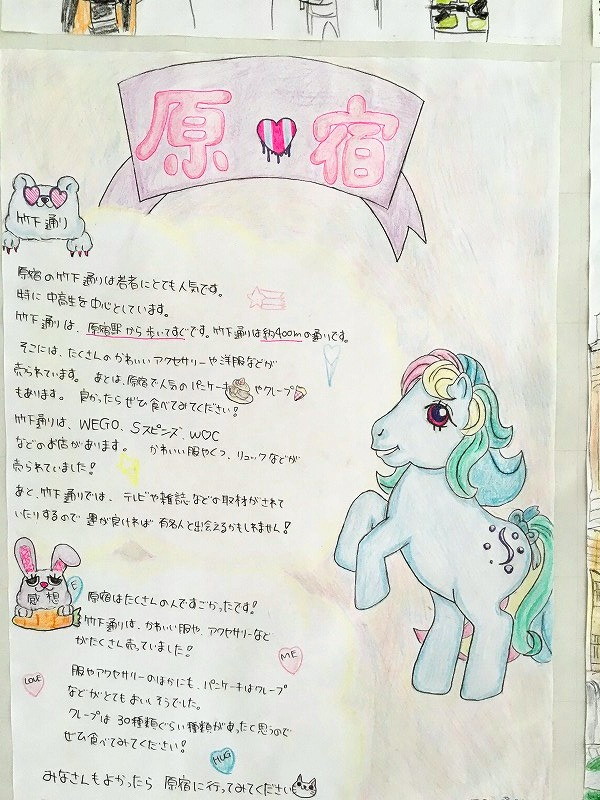 原宿
竹下通り
原宿の竹下通りは若者にとても人気です。
特に中高生を中心としています。
竹下通りは、原宿駅から歩いてすぐです。竹下通りは約400mの通りです。
そこには、たくさんのかわいいアクセサリーや洋服などが
売られています。 あとは、原宿で人気のパンケーキやクレープ
もあります。 良かったらぜひ食べてみてください!
竹下通りは、WEGO、Sスピンズ、W♡C
などのお店があります。 かわいい服やくつ、リュックなどが
売られていました!
あと、竹下通りでは、テレビや雑誌などの取材がされて
いたりするので 運が良ければ 有名人と出会えるかもしれません!
感想
原宿はたくさんの人ですごかったです!
竹下通りは、かわいい服や、アクセサリーなど
がたくさん売っていました!
ME
LOVE
服やアクセサリーのほかにも、パンケーキはクレープ
などがとてもおいしそうでした。
クレープは 30種類ぐらい種類があったと思うので
ぜひ食べてみてください!
HUG
みなさんもよかったら 原宿に行ってみてください